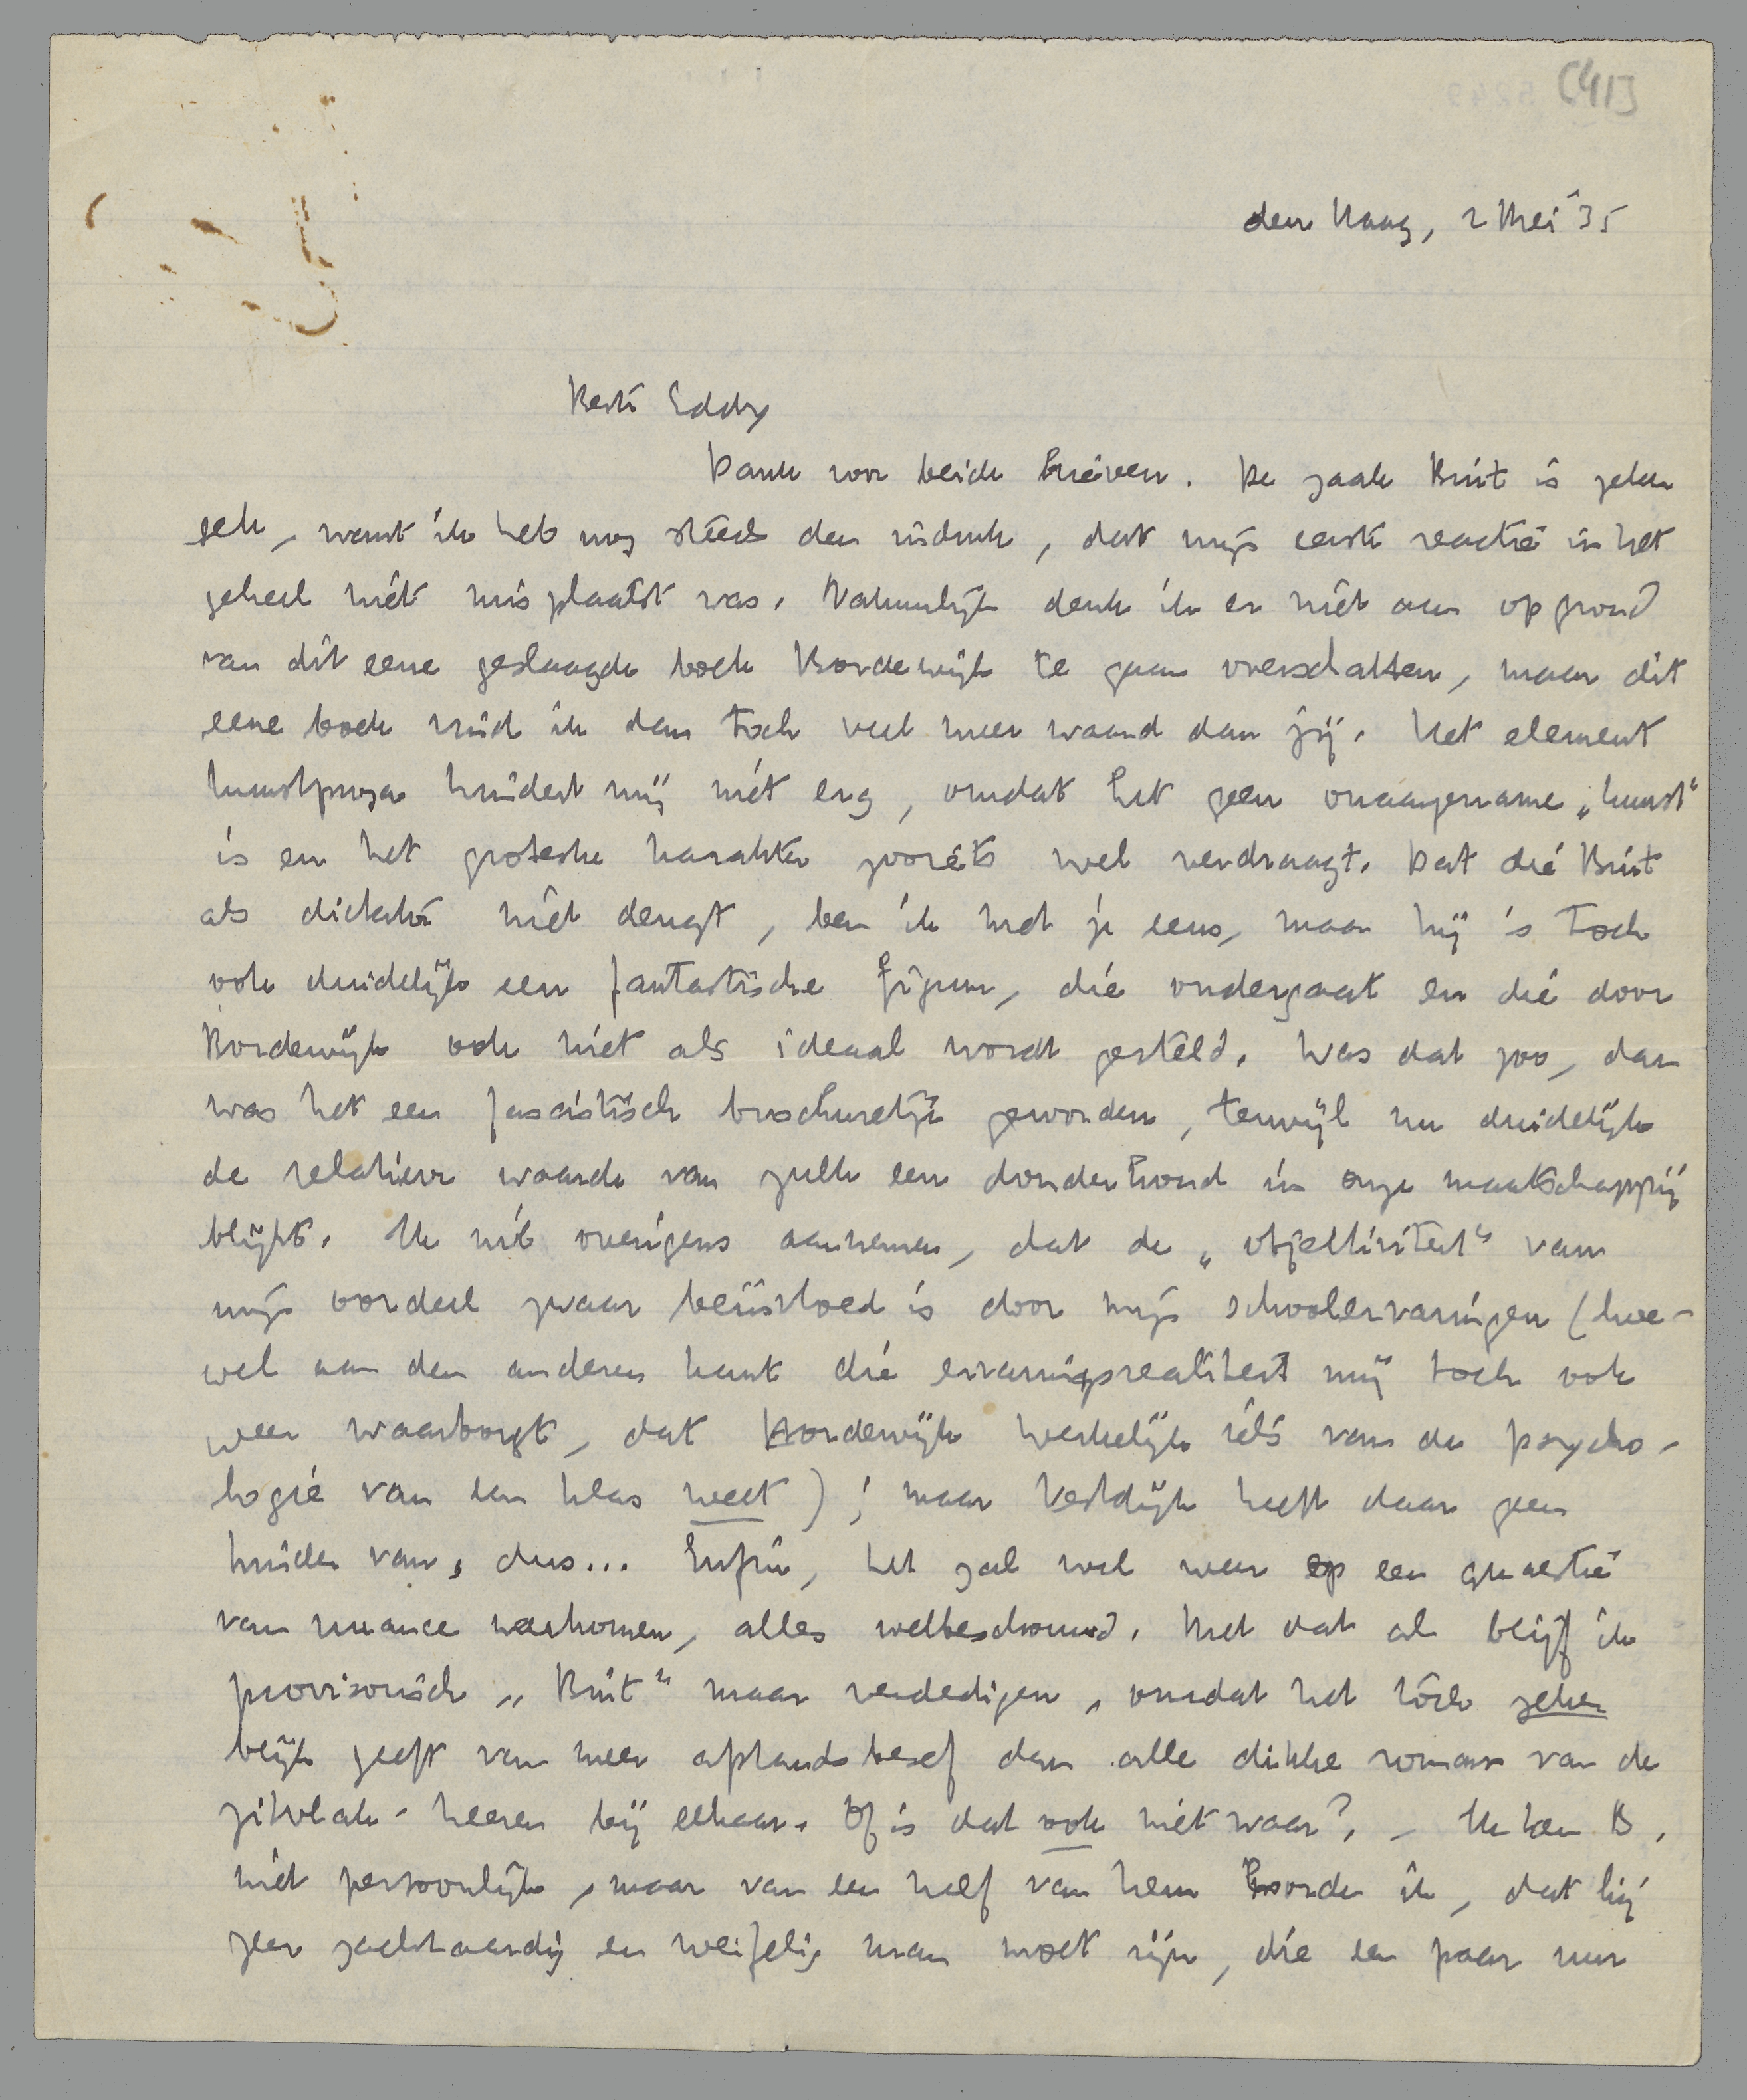 [41]
den Haag, 2 Mei '35
Beste Eddy
Dank voor beide brieven. De zaak Bint is zeker
gek, want ik heb nog steeds den indruk, dat mijn eerste reactie in het
geheel niet misplaatst was. Natuurlijk denk ik er niet aan op grond
van dit eene geslaagde boek Bordewijk te gaan overschatten, maar dit
eene boek vind ik dan toch veel meer waard dan jij. Het element
kunstproza hindert mij niet erg, omdat het geen onaangename „kunst"
is en het groteske karakter zooiets wel verdraagt. Dat die Bint
als dictator niet deugt, ben ik met je eens, maar hij is toch
ook duidelijk een fantastische figuur, die ondergaat en die door
Bordewijk ook niet als ideaal wordt gesteld. Was dat zoo, dan
was het een fascistisch brochuretje geworden, terwijl nu duidelijk
de relatieve waarde van zulk een donderhond in onze maatschappij
blijkt. Ik wil overigens aannemen, dat de „objectiviteit" van
mijn oordeel zwaar beïnvloed is door mijn schoolervaringen (hoe-
wel aan den anderen kant die ervaringsrealiteit mij toch ook
weer waarborgt, dat Bordewijk werkelijk iets van de psycho-
logie van een klas weet); maar Vestdijk heeft daar geen
hinder van, dus... Enfin, het zal wel weer op een quaestie
van nuance neerkomen, alles welbeschouwd. Met dat al blijf ik
provisorisch „Bint" maar verdedigen, omdat het tóch zeker
blijk geeft van meer afstandsbesef dan alle dikke romans van de
zitvlak-heeren bij elkaar. Of is dat ook niet waar? – Ik ken B.
niet persoonlijk, maar van een neef van hem hoorde ik, dat hij
zeer zachtaardig en weifelig man moet zijn, die een paar uur